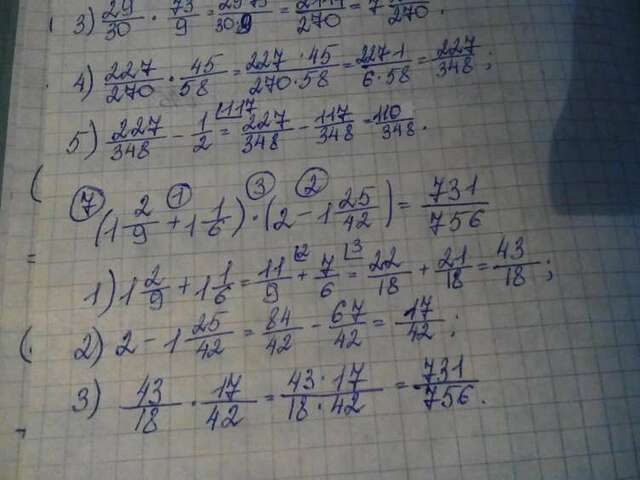 3) 29/30 · 73/9 = 29·73/30·9 = 2117/270 = 7 /270.
4) 227/270 · 45/58 = 227·45/270·58 = 227·1/6·58 = 227/348;
5) 227/348 - 1/2 = 227/348 - 117/348 = 110/348.
⑦ ① ③ ②
(1 2/9 + 1 1/6) · (2 - 1 25/42) = 731/756
1) 1 2/9 + 1 1/6 = 11/9 + 7/6 = 22/18 + 21/18 = 43/18;
2) 2 - 1 25/42 = 84/42 - 67/42 = 17/42;
3) 43/18 · 17/42 = 43·17/18·42 = 731/756.